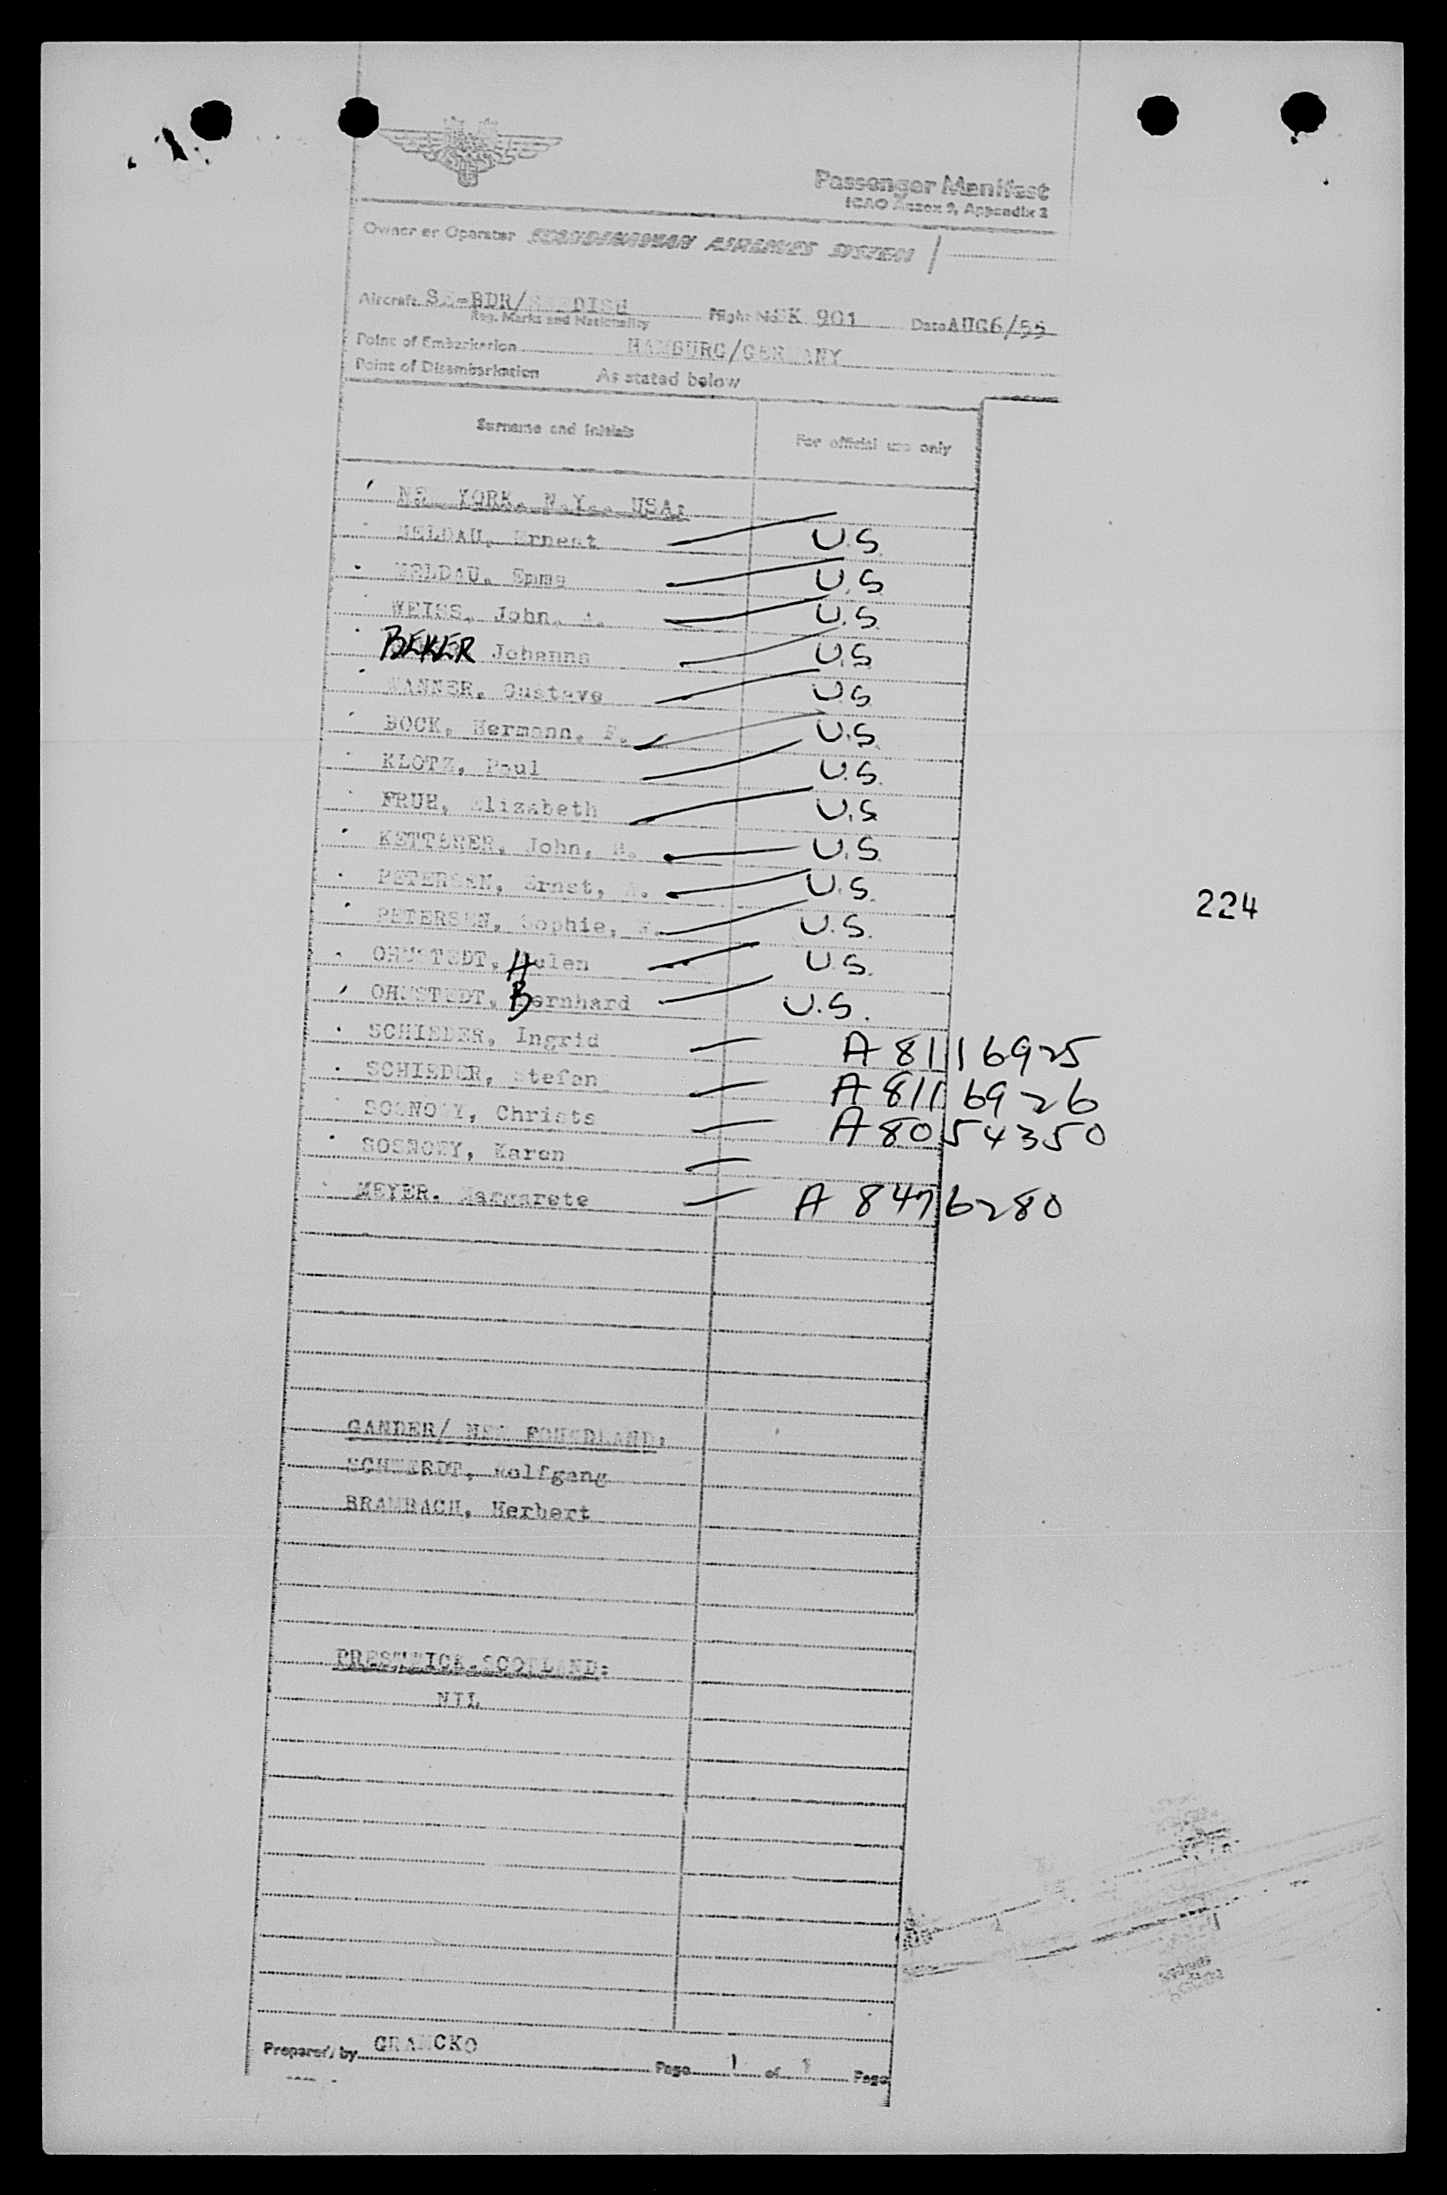 Passenger Manifest
ICAO Annex 9, Appendix 3
Owner or Operator SCANDINAVIAN AIRLINES SYSTEM
Aircraft SE-BDR/SWEDISH Flight No. SK 901 Date AUG6/55
Reg. Marks and Nationality
Point of Embarkation HAMBURG/GERMANY
Point of Disembarkation As stated below
Surname and Initials For official use only
NEW YORK, N.Y., USA:
MELDAU, Ernest U.S.
MELDAU, Emma U.S.
WEISS, John, A. U.S.
BEKER Johanna U.S.
WANNER, Gustave U.S.
BOCK, Hermann, F. U.S.
KLOTZ, Paul U.S.
FRUH, Elizabeth U.S.
KETTERER, John, U.S.
PETERSEN, Ernst, U.S.
PETERSEN, Sophie, U.S.
OHMSTEDT, Helen U.S.
OHMSTEDT, Bernhard U.S.
SCHIEDER, Ingrid A 8116925
SCHIEDER, Stefan A 8116926
SOSNOWY, Christa A 8054350
SOSNOWY, Karen
MEYER. Margarete A 8476280
224
GANDER/ NEW FOUNDLAND:
SCHWERDT, Wolfgang
BRAMBACH, Herbert
PRESTWICK-SCOTLAND:
NIL
Prepared by GRAMCKO Page 1 of 1 Page